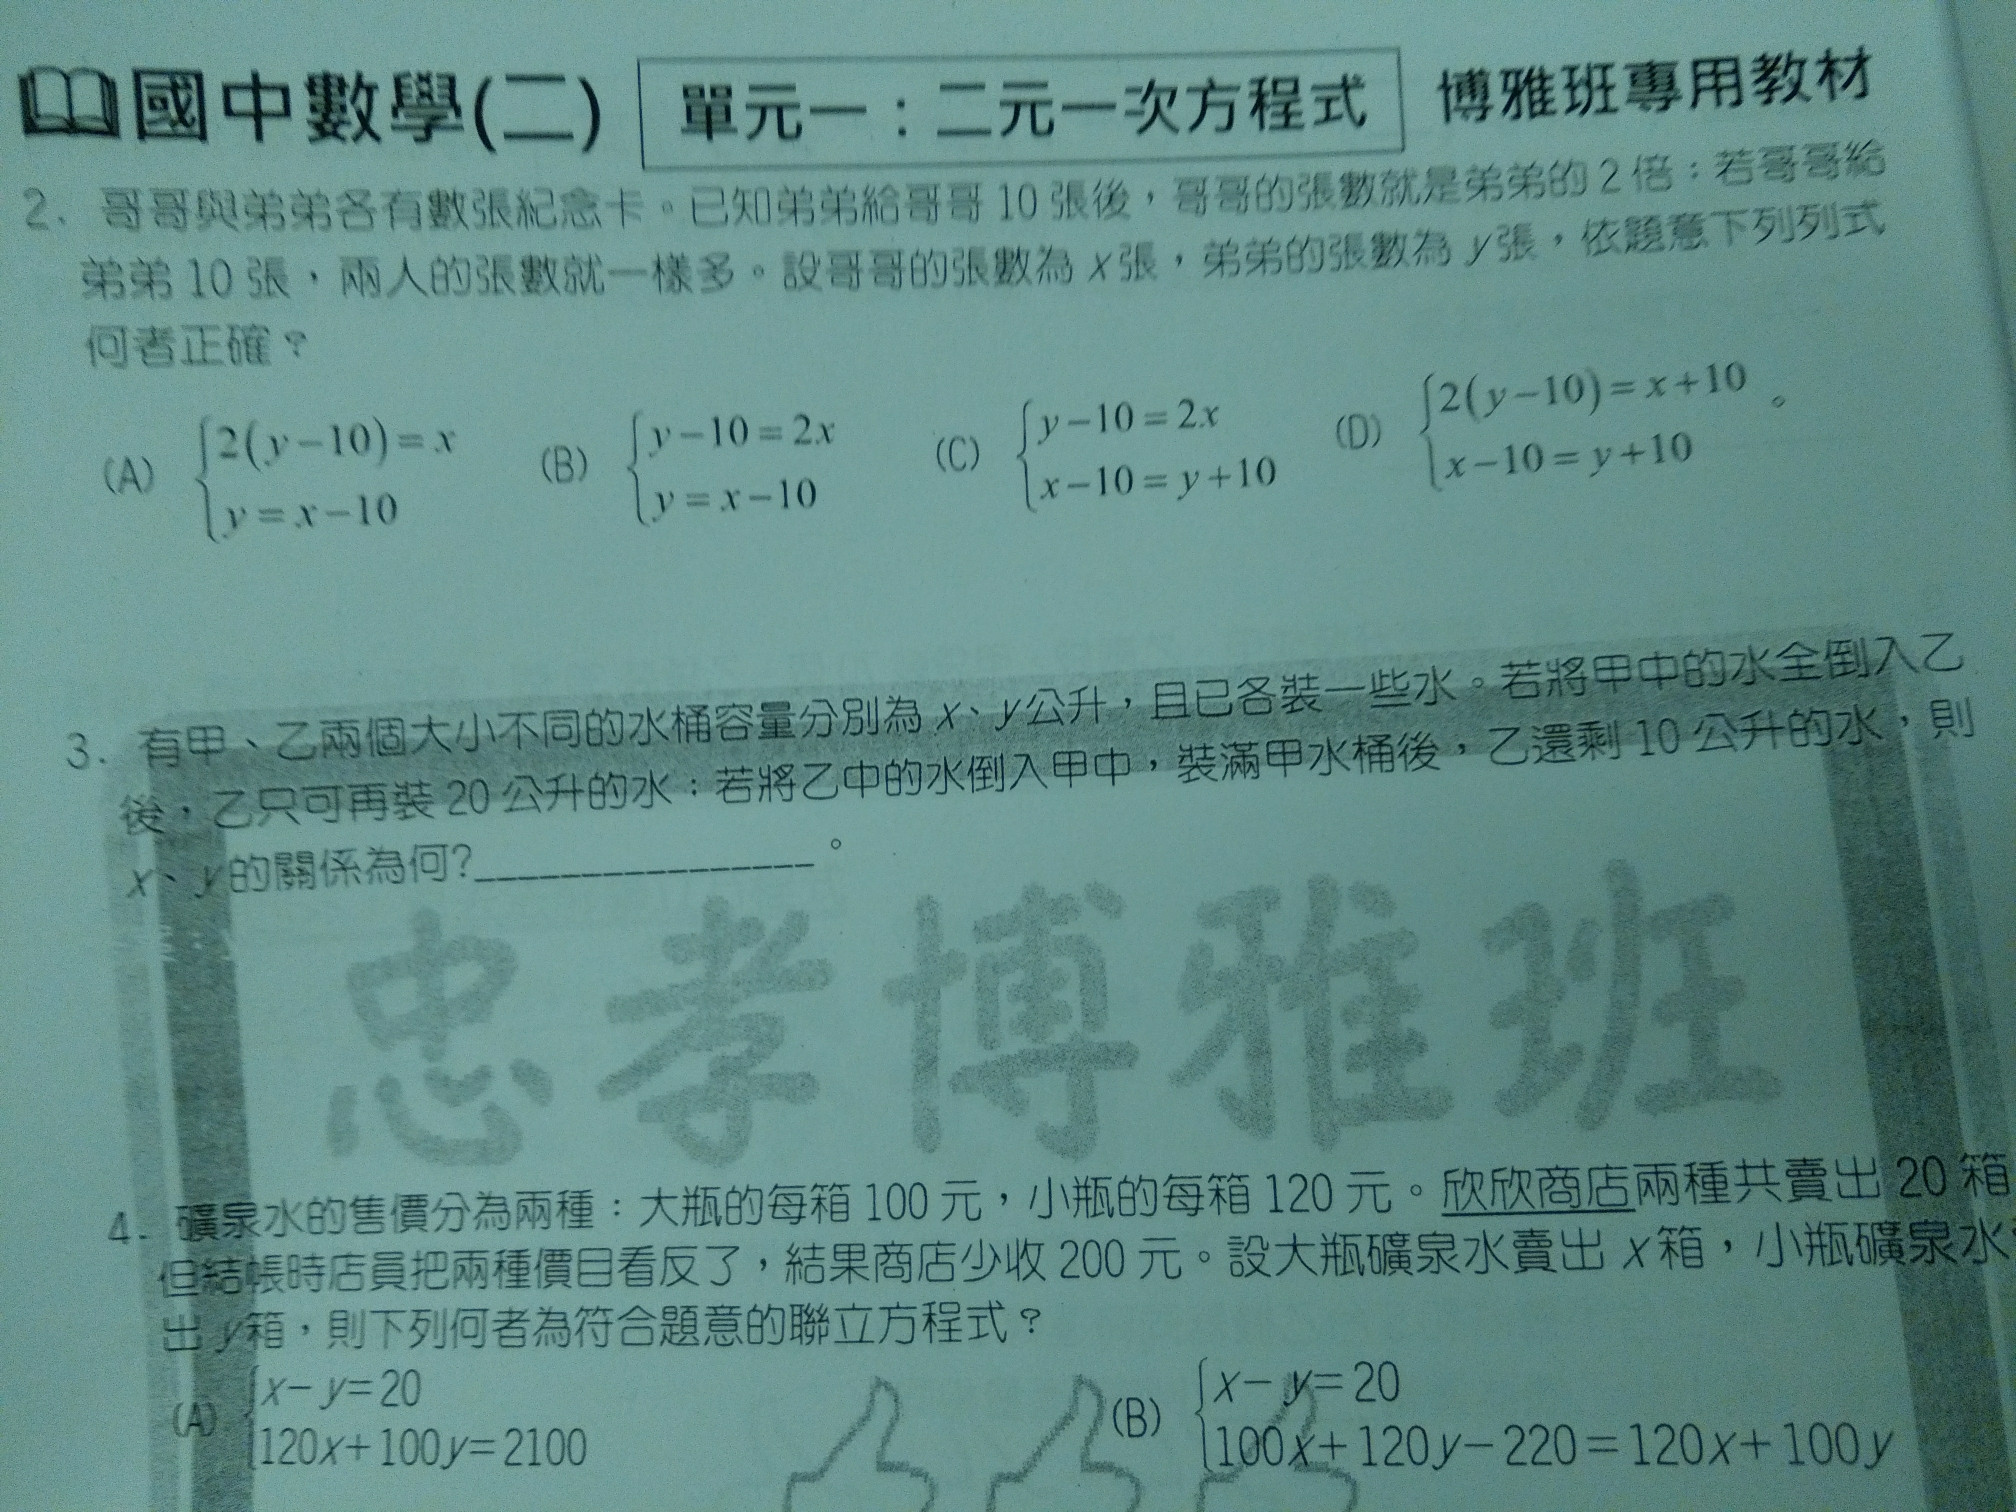 國中數學(二) 單元一：二元一次方程式 博雅班專用教材
2. 哥哥與弟弟各有數張紀念卡。已知弟弟給哥哥 10 張後，哥哥的張數就是弟弟的 2 倍；若哥哥給
弟弟 10 張，兩人的張數就一樣多。設哥哥的張數為 x 張，弟弟的張數為 y 張，依題意下列列式
何者正確？
(A) {2(y−10)=x (B) {y−10=2x (C) {y−10=2x (D) {2(y−10)=x+10 。
y=x−10 y=x−10 x−10=y+10 x−10=y+10
3. 有甲、乙兩個大小不同的水桶容量分別為 x、y 公升，且已各裝一些水。若將甲中的水全倒入乙
後，乙只可再裝 20 公升的水；若將乙中的水倒入甲中，裝滿甲水桶後，乙還剩 10 公升的水，則
x、y 的關係為何?________________。
忠孝博雅班
4. 礦泉水的售價分為兩種：大瓶的每箱 100 元，小瓶的每箱 120 元。欣欣商店兩種共賣出 20 箱
但結帳時店員把兩種價目看反了，結果商店少收 200 元。設大瓶礦泉水賣出 x 箱，小瓶礦泉水
出 y 箱，則下列何者為符合題意的聯立方程式？
(A) {x−y=20 (B) {x−y=20
120x+100y=2100 100x+120y−220=120x+100y